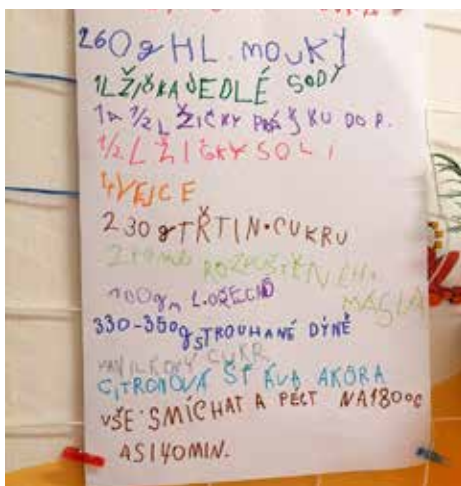 260g HL. MOUKY
1LŽIČKA JEDLÉ SODY
1 a 1/2 LŽIČKY PRÁŠKU DO P.
1/2 LŽIČKY SOLI
4 VEJCE
230g TŘTIN. CUKRU
ROZPUŠTĚNÉHO
MÁSLA
100g ML. OŘECHŮ
330-350g STROUHANÉ DÝNĚ
VANILKOVÝ CUKR
CITRONOVÁ ŠŤÁVA A KŮRA
VŠE SMÍCHAT A PÉCT NA 180°C
ASI 40 MIN.